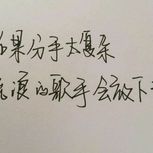 如果分手太复杂
流浪的歌手会放下